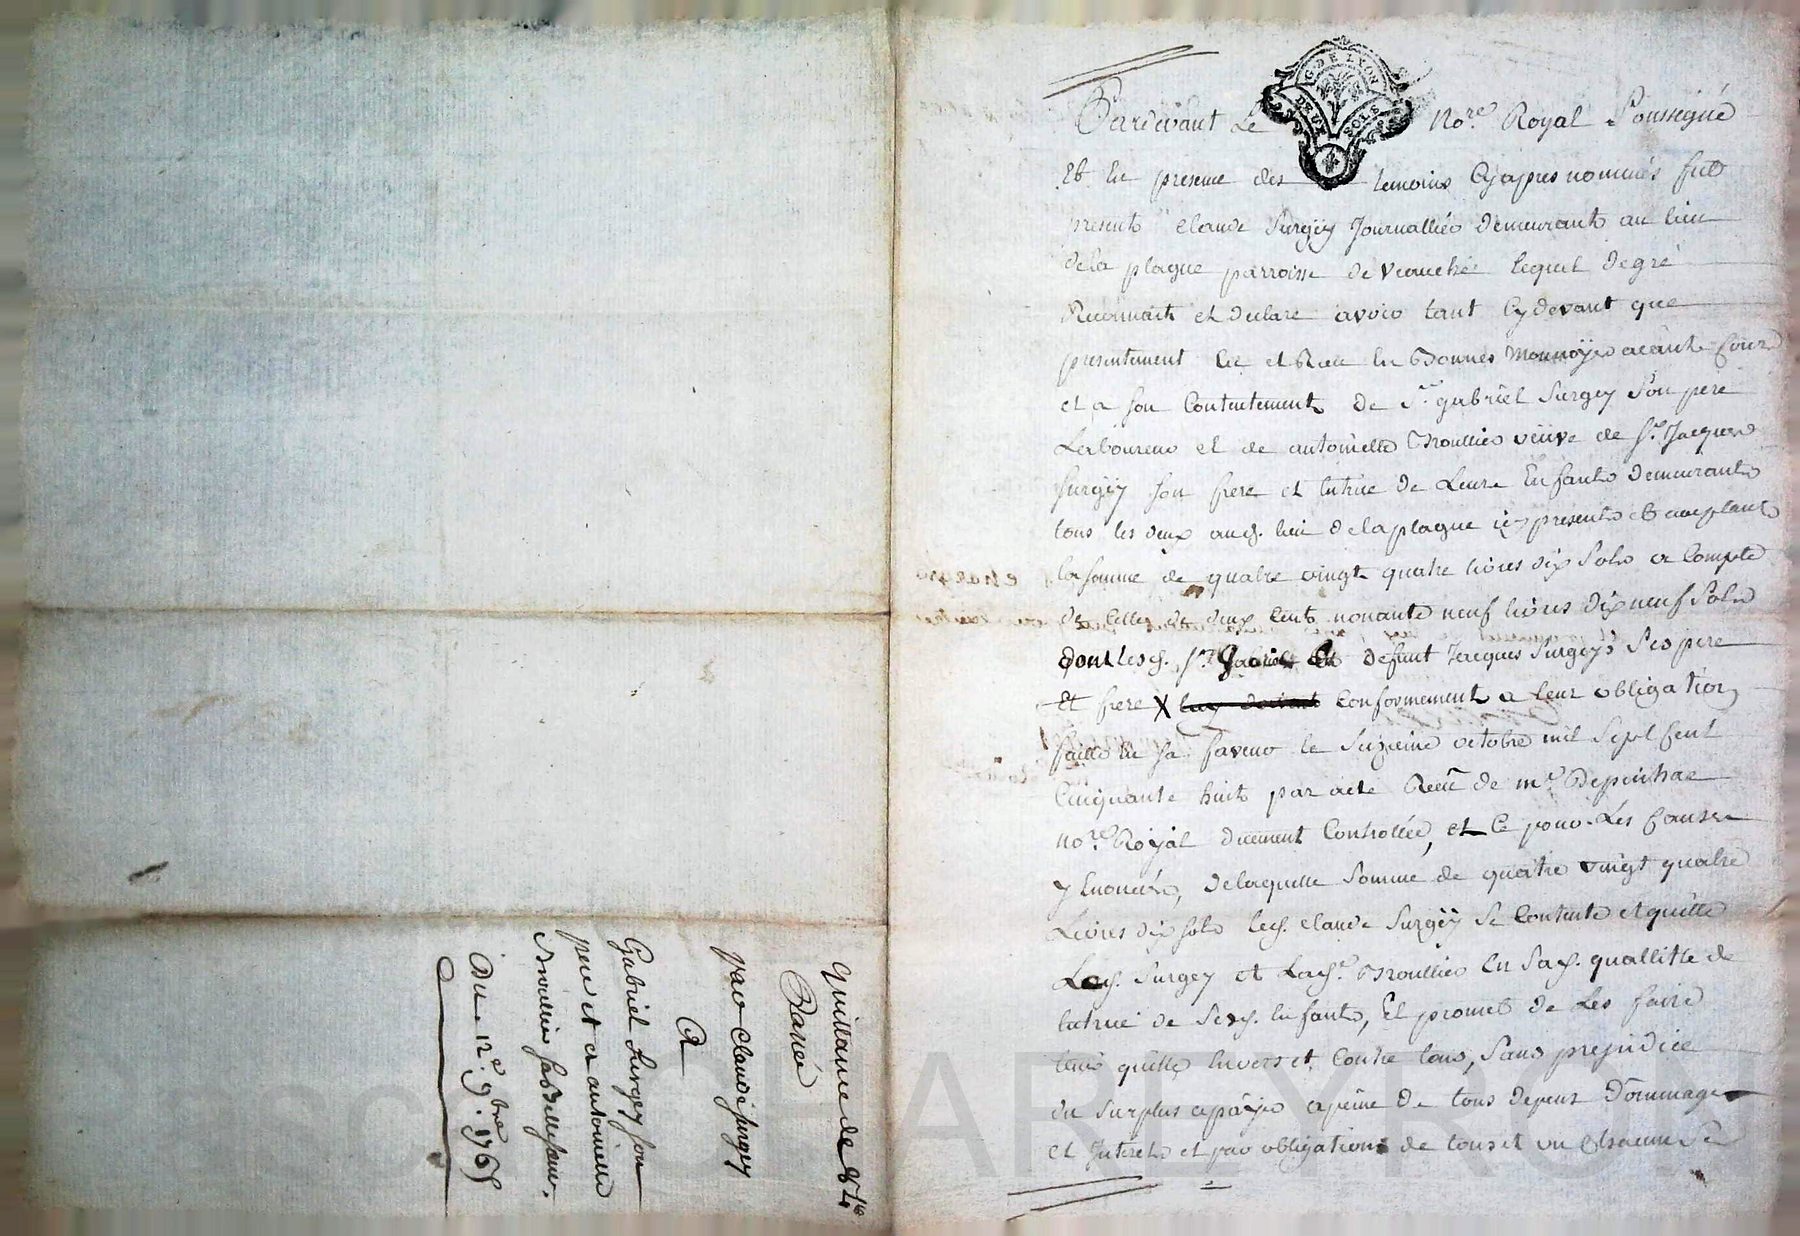 G. DE LYON
DEUX SOLS
Pardevant Le No.re Royal Soussigné
Et En presence des temoins Cyapres nommés fut
present Claude Surgey Journallier demeurant au lieu
dela plagne parroisse de veauche lequel degré
Reconnait et declare avoir tant Cydevant que
presentement Eu et Reçu En Bonnes monnoyes aïant Cour
et a son Contentement de S.r gabriel Surgey Son pere
Laboureur et de antoinette Broullier veüve de S.r Jacques
Surgey son frere et tutrice de Leurs Enfants demeurants
tous les deux aud. lieu dela plagne icy presents et acceptants
la somme de quatre vingt quatre livres dix Sols a Compte
de Celle de deux Cents nonante neuf livres dix neuf Sols
dont lesd. S.r Gabriel Et defunt Jacques Surgeys Ses pere
Et frere X luy doivent Conformement a leur obligation
faitte En sa faveur le Seizieme octobre mil Sept Cent
Cinquante huit par acte Reçu de m.e Depinhac
no.re Royal duement Controllée, et Ce pour Les Causes
y Enoncées, delaquelle Somme de quatre vingt quatre
Livres dix sols led. Claude Surgey Se Contente et quitte
Led. Surgey et Lad.e Broullier En Sad. quallitté de
tutrice de Sesd. Enfants, Et promet de Les faire
tenir quitte Envers et Contre tous, Sans prejudice
du Surplus a payer a peine de tous depens Dommages
et Interets et par obligations de tous et un Chacun Se
quittance de 84 tt
Passée
par Claude Surgey
A
Gabriel Surgey son
pere et a antoinette
Broullier sa Bellesœur.
Du 12.e 9.bre 1765
CHARLEYRON